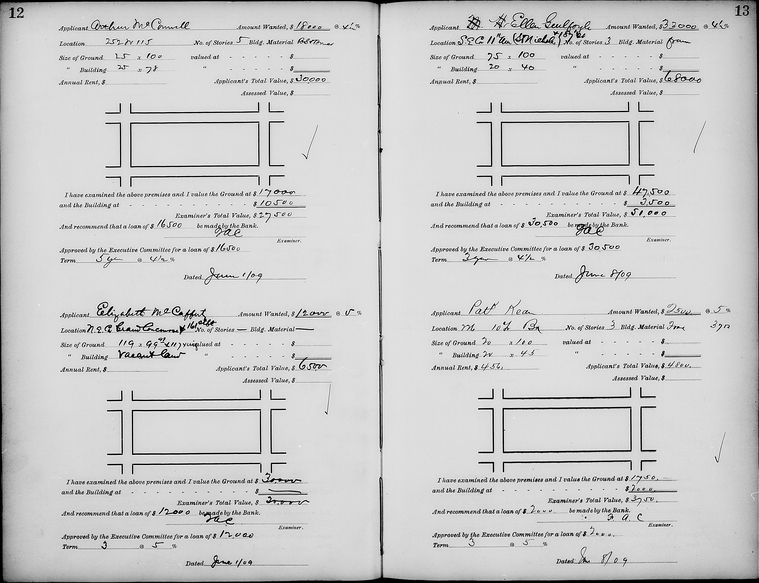 12
Applicant Arthur McConnell Amount Wanted, $ 18000 @ 4½ %
Location 252 W 115 No. of Stories 5 Bldg. Material
Size of Ground 25 x 100 valued at - - - - - - $
" Building 25 x 78 " - - - - - - $
Annual Rent, $ Applicant's Total Value, $ 30000
Assessed Value, $
I have examined the above premises and I value the Ground at $ 17000
and the Building at - - - - - - - - $ 10500
Examiner's Total Value, $ 27500
And recommend that a loan of $ 16500 be made by the Bank.
FAC
Examiner.
Approved by the Executive Committee for a loan of $ 16500
Term 5 yr @ 4½ %
Dated June 1/09
Applicant Elizabeth McCaffert Amount Wanted, $ 12000 @ 5 %
Location N.E.C. Grand Concourse & 161st St No. of Stories — Bldg. Material —
Size of Ground 119 x 99 x 117 valued at - - - $
" Building Vacant Land " - - - - - - $
Annual Rent, $ Applicant's Total Value, $ 6500
Assessed Value, $
I have examined the above premises and I value the Ground at $ 30,000
and the Building at - - - - - - - - $ —
Examiner's Total Value, $ 30,000
And recommend that a loan of $ 12000 be made by the Bank.
FAC
Examiner.
Approved by the Executive Committee for a loan of $ 12,000
Term 3 @ 5 %
Dated June 1/09
13
Applicant H. Ellen Guilfoyle Amount Wanted, $ 33000 @ 4½ %
Location S.E.C 11th Av (St Nichols) No. of Stories 3 Bldg. Material fram
Size of Ground 75 x 100 valued at - - - - - - $
" Building 20 x 40 " - - - - - - $
Annual Rent, $ Applicant's Total Value, $ 68000
Assessed Value, $
I have examined the above premises and I value the Ground at $ 47,500
and the Building at - - - - - - - - $ 3,500
Examiner's Total Value, $ 51,000
And recommend that a loan of $ 30,500 be made by the Bank.
FAC
Examiner.
Approved by the Executive Committee for a loan of $ 30,500
Term 3 yr @ 4½ %
Dated June 8/09
Applicant Patk Kean Amount Wanted, $ 2500 @ 5 %
Location No. of Stories 3 Bldg. Material Frame
Size of Ground 20 x 100 valued at - - - - - - $
" Building 20 x 45 " - - - - - - $
Annual Rent, $ 456. Applicant's Total Value, $ 4800.
Assessed Value, $
I have examined the above premises and I value the Ground at $ 1750.
and the Building at - - - - - - - - $ 2000.
Examiner's Total Value, $ 3750.
And recommend that a loan of $ 2000 be made by the Bank.
F. A. C
Examiner.
Approved by the Executive Committee for a loan of $ 2000.
Term 3 @ 5 %
Dated June 8/09